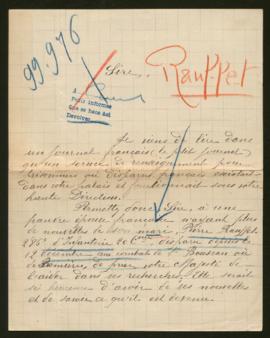 99.976
Sire,
Rauppet
A
Pour informer
Devoirs
Je viens de lire dans
un journal français, le petit journal
qu'un service de renseignement pour
prisonniers ou disparus français existait
dans votre palais et fonctionnait sous votre
haute Direction.
Permettez donc, Sire, à une
pauvre épouse française n'ayant plus
de nouvelles de son mari, Pierre
286e d'Infanterie 20e Cie, disparu depuis le
12 décembre au combat de
de prier votre Majesté de
l'aider dans ses recherches. Elle serait
si heureuse d'avoir de ses nouvelles
et de savoir ce qu'il est devenu.